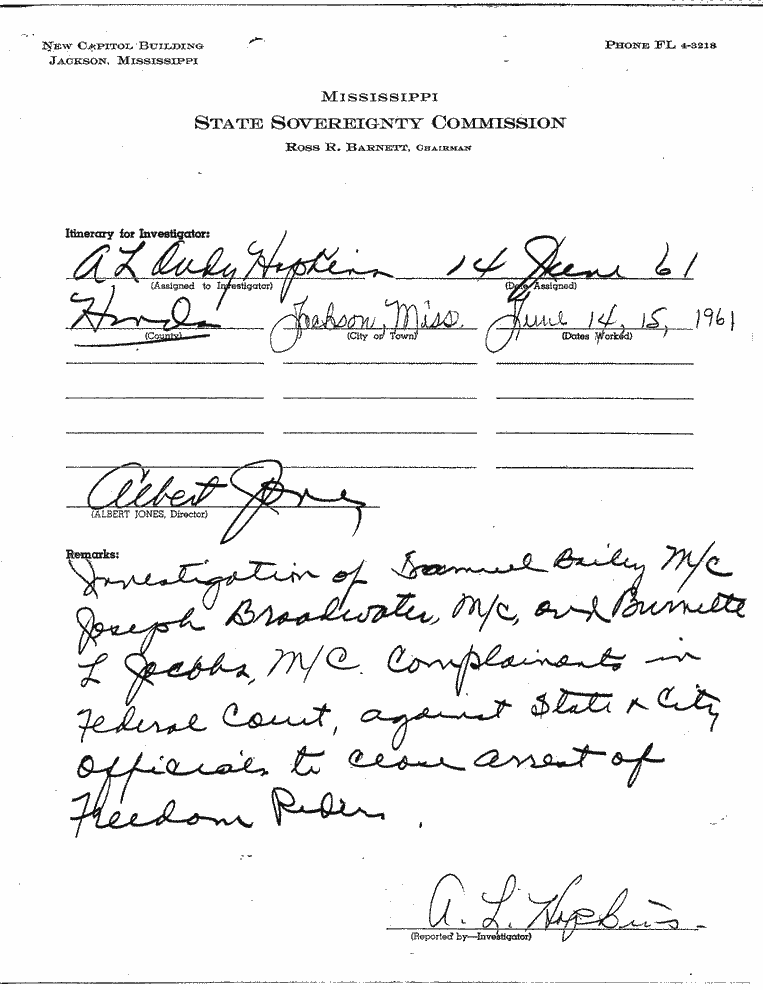 NEW CAPITOL BUILDING
JACKSON, MISSISSIPPI
PHONE FL 4-3218
MISSISSIPPI
STATE SOVEREIGNTY COMMISSION
ROSS R. BARNETT, CHAIRMAN
Itinerary for Investigator:
A L Andy Hopkins 14 June 61
(Assigned to Investigator) (Date Assigned)
Hinds Jackson, Miss. June 14, 15, 1961
(County) (City or Town) (Dates Worked)
Albert Jones
(ALBERT JONES, Director)
Remarks:
Investigation of Samuel Bailey M/C
Joseph Broadwater, M/C, and Burnette
L Jacobs, M/C. Complainants in
Federal Court, against State & City
Officials to cease arrest of
Freedom Riders.
A. L. Hopkins
(Reported by—Investigator)